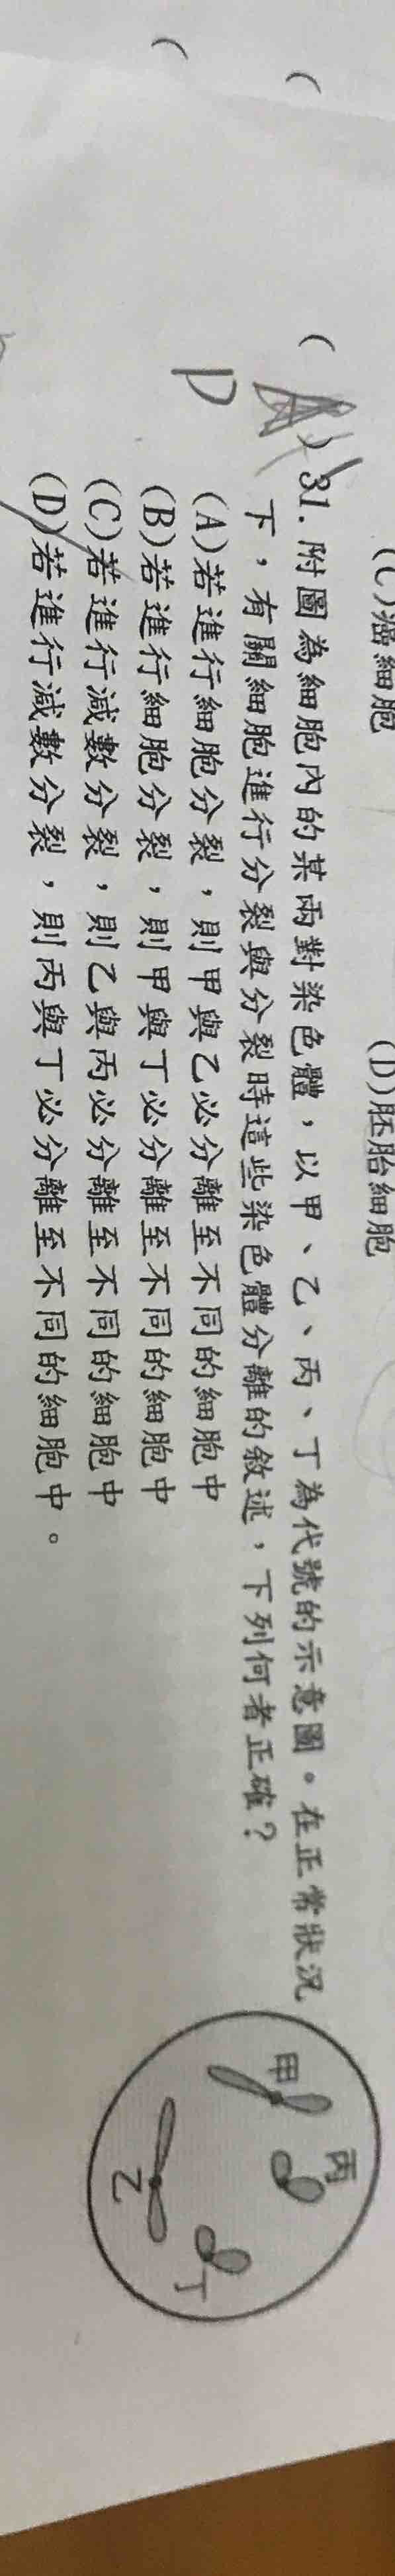 (C)癌細胞 (D)胚胎細胞
( A )31.附圖為細胞內的某兩對染色體，以甲、乙、丙、丁為代號的示意圖。在正常狀況
D 下，有關細胞進行分裂與分裂時這些染色體分離的敘述，下列何者正確？
(A)若進行細胞分裂，則甲與乙必分離至不同的細胞中
(B)若進行細胞分裂，則甲與丁必分離至不同的細胞中
(C)若進行減數分裂，則乙與丙必分離至不同的細胞中
(D)若進行減數分裂，則丙與丁必分離至不同的細胞中。
甲
丙
乙
丁